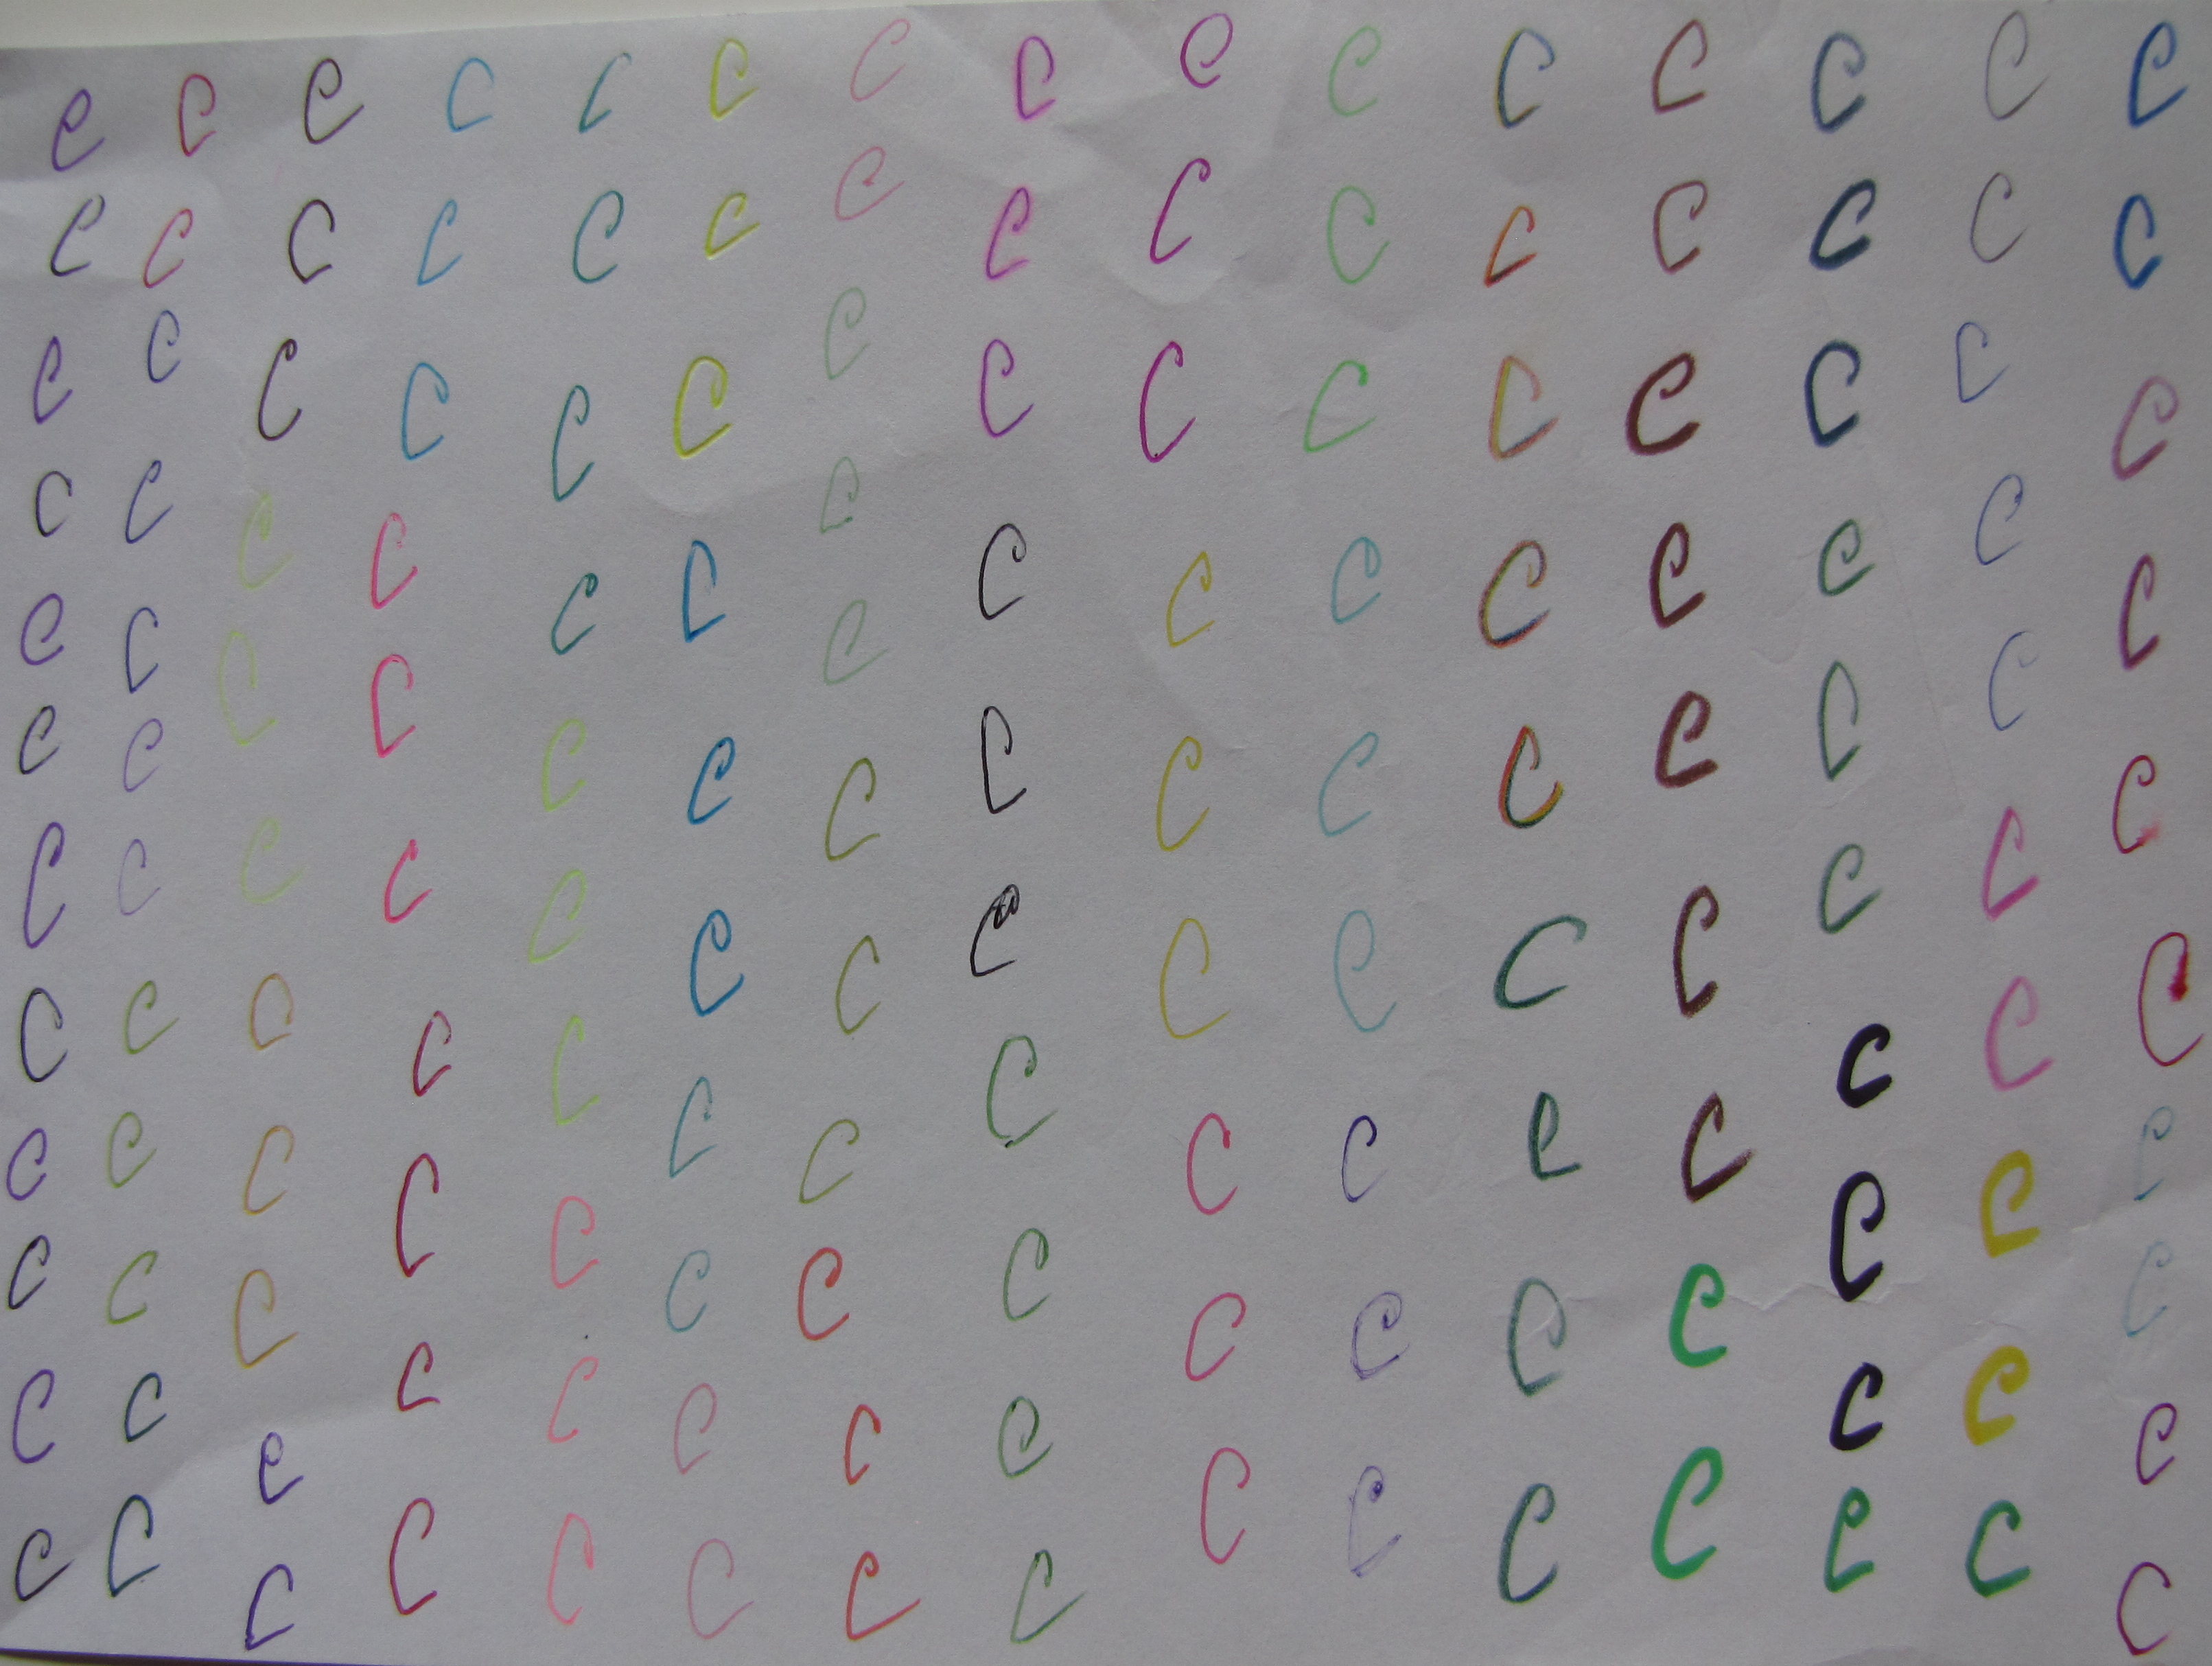 C C C C C C C C C C C C C C C
C C C C C C C C C C C C C C C
C C C C C C C C C C C C C C C
C C C C C C C C C C C C C C C
C C C C C C C C C C C C C C C
C C C C C C C C C C C C C C C
C C C C C C C C C C C C C C C
C C C C C C C C C C C C C C C
C C C C C C C C C C C C C C C
C C C C C C C C C C C
C C C C
C C